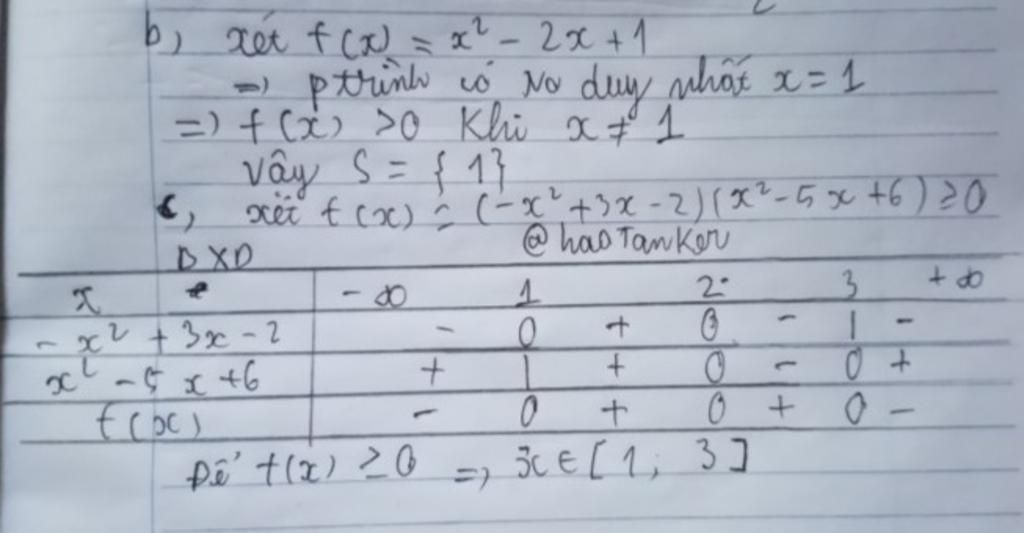 b, xét f(x) = x² - 2x + 1
=> ptrình có No duy nhất x = 1
=> f(x) > 0 Khi x ≠ 1
Vậy S = { 1}
c, xét f(x) = (-x² + 3x - 2)(x² - 5x + 6) ≥ 0
@haoTanKer
BXD
x -∞ 1 2 3 +∞
-x² + 3x - 2 - 0 + 0 - | -
x² - 5x + 6 + | + 0 - 0 +
f(x) - 0 + 0 + 0 -
Để f(x) ≥ 0 => x ∈ [ 1; 3 ]